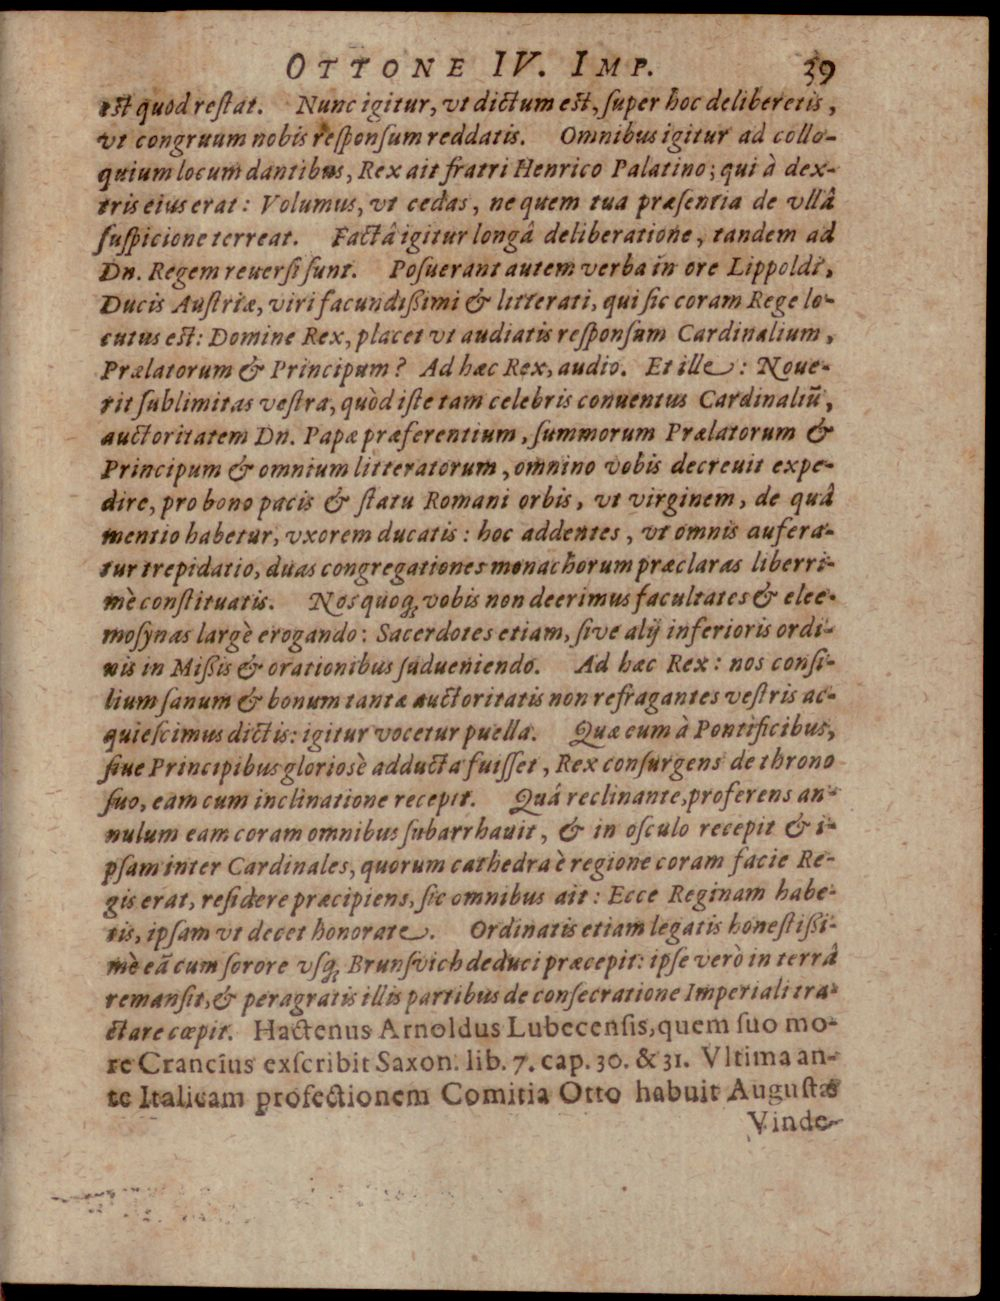 OTTONE IV. IMP. 39
est quod restat. Nunc igitur, vt dictum est, super hoc deliberetis,
vt congruum nobis responsum reddatis. Omnibus igitur ad collo-
quium locum dantibus, Rex ait fratri Henrico Palatino; qui à dex-
tris eius erat: Volumus, vt cedas, ne quem tua præsentia de vllâ
suspicione terreat. Factâ igitur longâ deliberatione, tandem ad
Dn. Regem reuersi sunt. Posuerant autem verba in ore Lippoldi,
Ducis Austriæ, viri facundißimi & litterati, qui sic coram Rege lo-
cutus est: Domine Rex, placet vt audiatis responsum Cardinalium,
Prælatorum & Principum? Ad hæc Rex, audio. Et ille: Noue-
rit sublimitas vestra, quòd iste tam celebris conuentus Cardinaliũ,
auctoritatem Dn. Papæ præferentium, summorum Prælatorum &
Principum & omnium litteratorum, omnino vobis decreuit expe-
dire, pro bono pacis & statu Romani orbis, vt virginem, de quâ
mentio habetur, vxorem ducatis: hoc addentes, vt omnis aufera-
tur trepidatio, duas congregationes monachorum præclaras liberri-
mè constituatis. Nos quoq; vobis non deerimus facultates & elee-
mosynas largè erogando: Sacerdotes etiam, sive alij inferioris ordi-
nis in Mißis & orationibus sudueniendo. Ad hæc Rex: nos consi-
lium sanum & bonum tantæ auctoritatis non refragantes vestris ac-
quiescimus dictis: igitur vocetur puella. Quæ eum à Pontificibus,
siue Principibus gloriosè adducta fuisset, Rex consurgens de throno
suo, eam cum inclinatione recepit. Quâ reclinante, proferens an-
nulum eam coram omnibus subarrhauit, & in osculo recepit & i-
psam inter Cardinales, quorum cathedra è regione coram facie Re-
gis erat, residere præcipiens, sic omnibus ait: Ecce Reginam habe-
tis, ipsam vt decet honorate. Ordinatis etiam legatis honestißi-
mè eã cum sorore vsq; Brunsvich deduci præcepit: ipse verò in terrâ
remansit, & peragratis illis partibus de consecratione Imperiali tra-
ctare cœpit. Hactenus Arnoldus Lubecensis, quem suo mo-
re Crancius exscribit Saxon. lib. 7. cap. 30. & 31. Vltima an-
te Italicam profectionem Comitia Otto habuit Augustæ
Vinde-